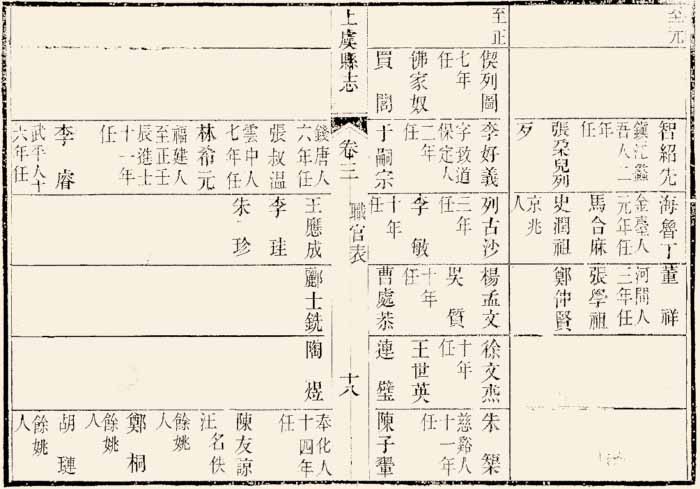 至元
至正
偰列圖
七年
任
佛家奴
買閭
智紹先
吾人二
年任
張朶兒列
歹
李好義
字致道
保定人
二年
任
于嗣宗
海魯丁
金臺人
元年任
馬合麻
史潤祖
京兆
人
列古沙
三年
任
李敏
十年
任
董祥
河間人
三年任
張學祖
鄭仲賢
楊孟文
吳質
十年
任
曹處恭
徐文杰
十年
任
王世英
連璧
朱築
慈谿人
十一年
任
陳子翬
上虞縣志
卷三
職官表
十八
錢唐人
六年任
張叔溫
雲中人
七年任
林希元
福建人
至正壬
辰進士
十一年
任
李睿
武平人十
六年任
王應成
李珪
朱珍
酈士銑
陶煜
奉化人
十四年
任
陳友諒
汪名佚
餘姚
人
鄭桐
餘姚
人
胡璉
餘姚
人